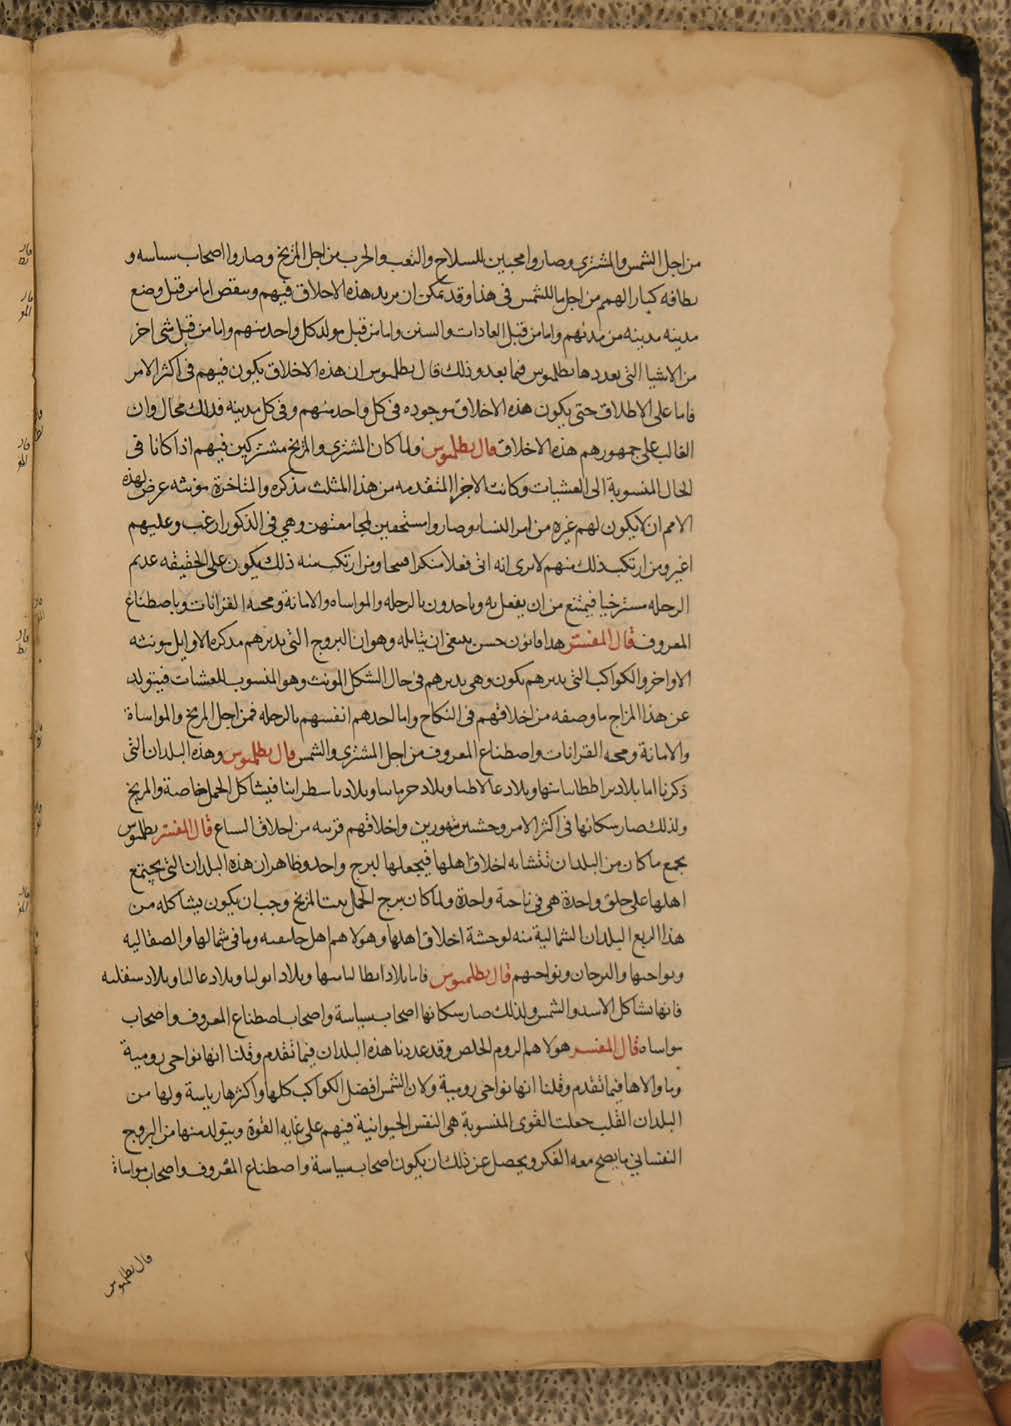 من اجل الشمس والمشتري وصاروا محبين للسلاح والتعب والحرب من اجل المريخ وصاروا اصحاب سياسه و
نظافه كبار الهمم من اجل ما للشمس في هذا وقد يمكن ان يزيد هذه الاخلاق فيهم وينقص اما من قبل وضع
مدينه مدينه من مدنهم واما من قبل العادات والسنن واما من قبل مولد كل واحد منهم واما من قبل شي اخر
من الاشيا التي يعددها بطلميوس فيما بعد ولذلك قال بطلميوس ان هذه الاخلاق يكون فيهم في اكثر الامر
فاما على الاطلاق حتى يكون هذه الاخلاق موجوده في كل واحد منهم وفي كل مدينه فذلك محال وان
الغالب على جمهورهم هذه الاخلاق قال بطلميوس ولما كان المشتري والمريخ مشتركين فيهم اذا كانا في
الحال المنسوبة الى العشيات وكانت الاجزا المتقدمه من هذا المثلث مذكره والمتاخرة مؤنثه عرض لهذه
الامم ان لا يكون لهم غيره من امر النسا وصاروا مستخفين لمجامعتهن وهي في الذكور ارغب وعليهم
اغير ومن ارتكب ذلك منهم لا يرى انه اتى فعلا منكرا قبيحا ومن ارتكب منه ذلك يكون على الحقيقه عديم
الرجله مسترخيا فيمتنع من ان يفعل به وياخذون بالرجله والمواساه والامانة ومحبه القرابات وباصطناع
المعروف قال المفسر هذا قانون حسن ينبغي ان يتامله وهو ان البروج التي يدبرهم مذكره الاوايل مونثه
الاواخر والكواكب التي يدبرهم يكون وهي يدبرهم في حال الشكل المونث وهو المنسوب للعشيات فيتولد
عن هذا المزاج ما وصفه من اخلاقهم في النكاح واما اخذهم انفسهم بالرجله فمن اجل المريخ والمواساة
والامانة ومحبه القرابات واصطناع المعروف من اجل المشتري والشمس قال بطلميوس وهذه البلدان التي
ذكرنا اما بلاد وبلاد وبلاد وبلاد فيشاكل الحمل خاصة والمريخ
ولذلك صار سكانها في اكثر الامر وحشيين متهورين واخلاقهم قريبه من اخلاق السباع قال المفسر بطلميوس
يجمع ما كان من البلدان تتشابه اخلاق اهلها فيجعلها لبرج واحد وظاهر ان هذه البلدان التي يجتمع
اهلها على خلق واحدة هي في ناحية واحدة ولما كان برج الحمل بيت المريخ وجب ان يكون يشاكله من
هذا الربع البلدان الشمالية منه لوحشة اخلاق اهلها وهولاهم اهل وما في شمالها والصقاليه
ونواحيها والبرجان ونواحيهم قال بطلميوس فاما بلاد وبلاد وبلاد وبلاد
فانها تشاكل الاسد والشمس ولذلك صار سكانها اصحاب سياسة واصحاب اصطناع المعروف واصحاب
مواساه قال المفسر هولاهم الروم الخلص وقد عددنا هذه البلدان فيما تقدم وقلنا انها نواحي رومية
وما والاها فيما تقدم وقلنا انها نواحي رومية ولان الشمس افضل الكواكب كلها واكثرها رياسة ولها من
البلدان القلب جعلت القوى المنسوبة هي النفس الحيوانية فيهم على غايه القوة ويتولد منها من البروج
النفساني ما يصح معه الفكر ويحصل عن ذلك ان يكون اصحاب سياسة واصطناع المعروف واصحاب مواساة
قال بطلميوس